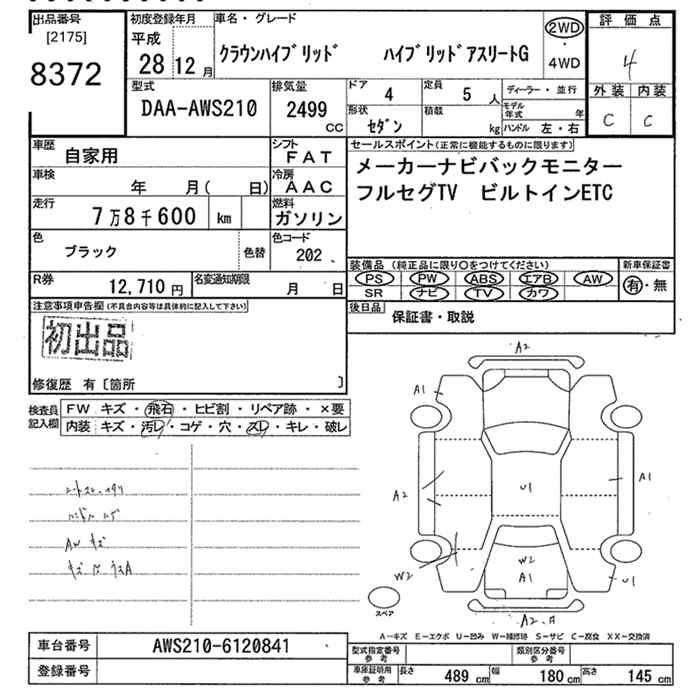 出品番号 初度登録年月 車名・グレード 評価点
[2175] 平成
8372 28 12月 クラウンハイブリッド ハイブリッドアスリートG 2WD・4WD 4
型式 排気量 ドア 4 定員 5人 ディーラー・並行 外装 内装
DAA-AWS210 2499cc 形状 セダン 積載 kg モデル年式 年 ハンドル 左・右 C C
車歴 自家用 シフト FAT セールスポイント(正常に機能するものに限ります)
車検 年 月( 日) 冷房 AAC メーカーナビバックモニター
走行 7万8千600 km 燃料 ガソリン フルセグTV ビルトインETC
色 ブラック 色替 色コード 202
R券 12,710円 名変通知期限 月 日 装備品(純正品に限り○をつけてください) 新車保証書
PS PW ABS エアB AW 有・無
SR ナビ TV カワ
注意事項申告欄(不具合内容等は具体的に記入して下さい) 後日品 保証書・取説
初出品
修復歴 有〔箇所 〕
検査員記入欄 FW キズ・飛石・ヒビ割・リペア跡・×要
内装 キズ・汚レ・コゲ・穴・スレ・キレ・破レ
A2
A1
A2 U1 A1
W2 W2 A1 U1
スペア
AW キズ
A-キズ E-エクボ U-凹み W-補修跡 S-サビ C-腐食 XX-交換済
車台番号 AWS210-6120841 型式指定番号 参考 類別区分番号 参考
登録番号 車庫証明用 参考 長さ 489cm 幅 180cm 高さ 145cm